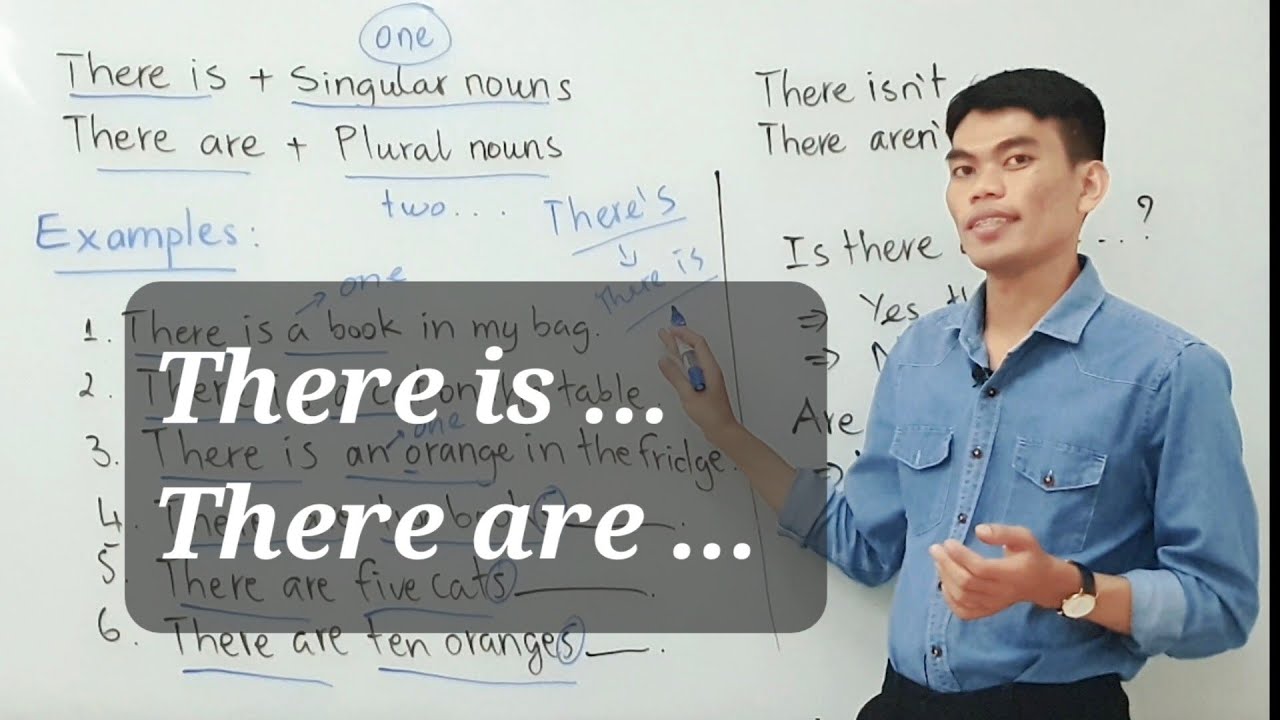 one
There is + Singular nouns
There are + Plural nouns
two....
Examples:
There's
There is
one
1. There is a book in my bag.
2. There is a cat on the table.
one
3. There is an orange in the fridge.
4. There are
5. There are five cats ______.
6. There are ten oranges ___.
There is ...
There are ...
There isn't
There aren't
Is there ... ?
⇒ Yes
⇒
Are
⇒